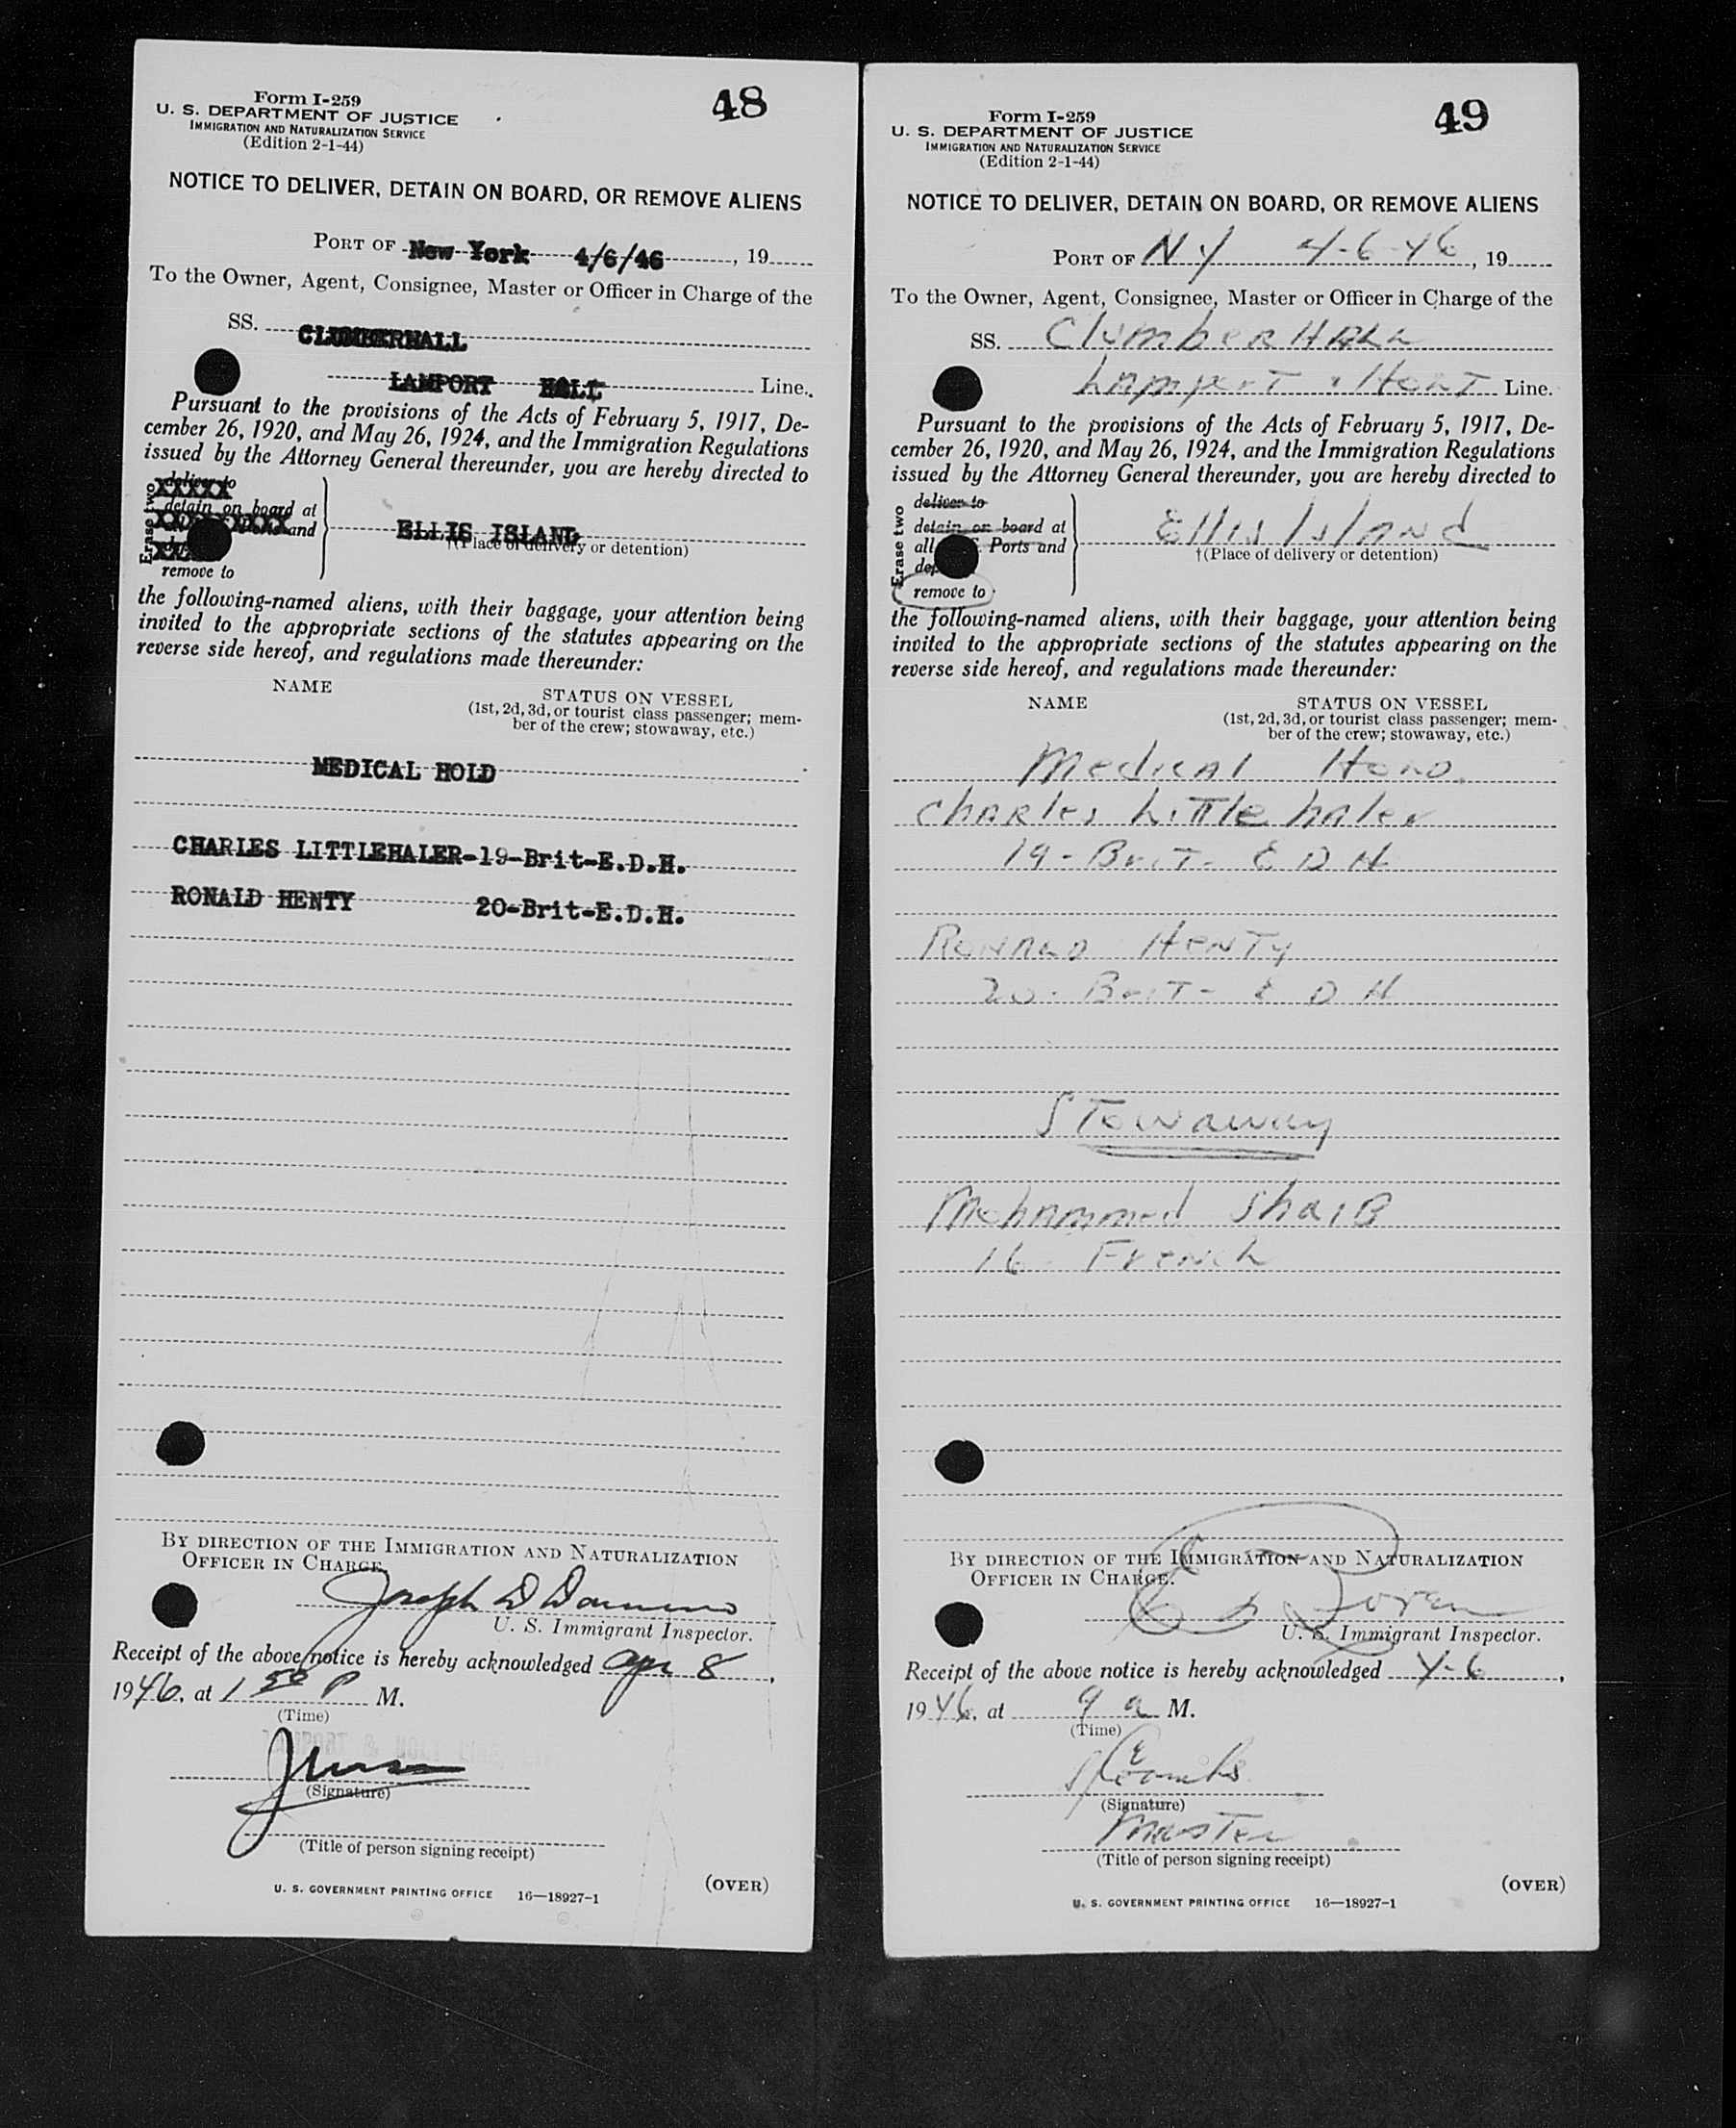 48
Form I-259
U. S. DEPARTMENT OF JUSTICE
IMMIGRATION AND NATURALIZATION SERVICE
(Edition 2-1-44)
NOTICE TO DELIVER, DETAIN ON BOARD, OR REMOVE ALIENS
PORT OF New York 4/6/46, 19
To the Owner, Agent, Consignee, Master or Officer in Charge of the
SS. CLUMBERHALL
LAMPORT HOLT Line.
Pursuant to the provisions of the Acts of February 5, 1917, De-
cember 26, 1920, and May 26, 1924, and the Immigration Regulations
issued by the Attorney General thereunder, you are hereby directed to
Erase two
deliver to
detain on board at
and
remove to
ELLIS ISLAND
†(Place of delivery or detention)
the following-named aliens, with their baggage, your attention being
invited to the appropriate sections of the statutes appearing on the
reverse side hereof, and regulations made thereunder:
NAME
STATUS ON VESSEL
(1st, 2d, 3d, or tourist class passenger; mem-
ber of the crew; stowaway, etc.)
MEDICAL HOLD
CHARLES LITTLEHALER-19-Brit-E.D.H.
RONALD HENTY 20-Brit-E.D.H.
BY DIRECTION OF THE IMMIGRATION AND NATURALIZATION
OFFICER IN CHARGE.
Joseph D
U. S. Immigrant Inspector.
Receipt of the above notice is hereby acknowledged Apr 8,
1946, at 1 50 P M.
(Time)
(Signature)
(Title of person signing receipt)
U. S. GOVERNMENT PRINTING OFFICE 16—18927-1
(OVER)
49
Form I-259
U. S. DEPARTMENT OF JUSTICE
IMMIGRATION AND NATURALIZATION SERVICE
(Edition 2-1-44)
NOTICE TO DELIVER, DETAIN ON BOARD, OR REMOVE ALIENS
PORT OF N Y 4-6-46, 19
To the Owner, Agent, Consignee, Master or Officer in Charge of the
SS. Clumber HALL
Lamport & Holt Line.
Pursuant to the provisions of the Acts of February 5, 1917, De-
cember 26, 1920, and May 26, 1924, and the Immigration Regulations
issued by the Attorney General thereunder, you are hereby directed to
Erase two
deliver to
detain on board at
all Ports and
remove to
Ellis Island
†(Place of delivery or detention)
the following-named aliens, with their baggage, your attention being
invited to the appropriate sections of the statutes appearing on the
reverse side hereof, and regulations made thereunder:
NAME
STATUS ON VESSEL
(1st, 2d, 3d, or tourist class passenger; mem-
ber of the crew; stowaway, etc.)
Medical Hold
Charles Littlehaler
19 - Brit - E D H
Ronald Henty
20 - Brit - E D H
Stowaway
Mohammed Shaib
16 - French
BY DIRECTION OF THE IMMIGRATION AND NATURALIZATION
OFFICER IN CHARGE.
U. S. Immigrant Inspector.
Receipt of the above notice is hereby acknowledged 4-6,
1946, at 9 a M.
(Time)
(Signature)
Master
(Title of person signing receipt)
U. S. GOVERNMENT PRINTING OFFICE 16—18927-1
(OVER)